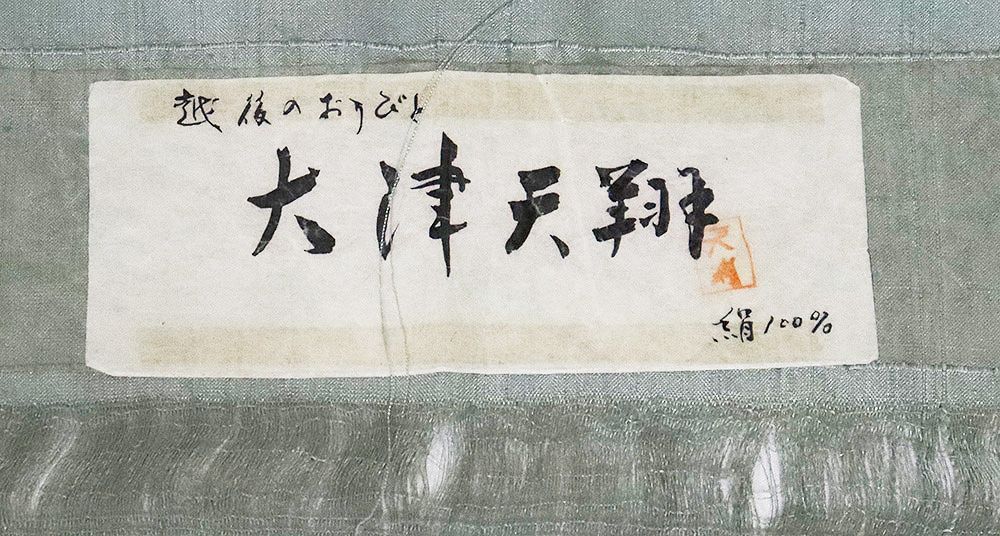 越後のおりびと
大津天翔
絹100%